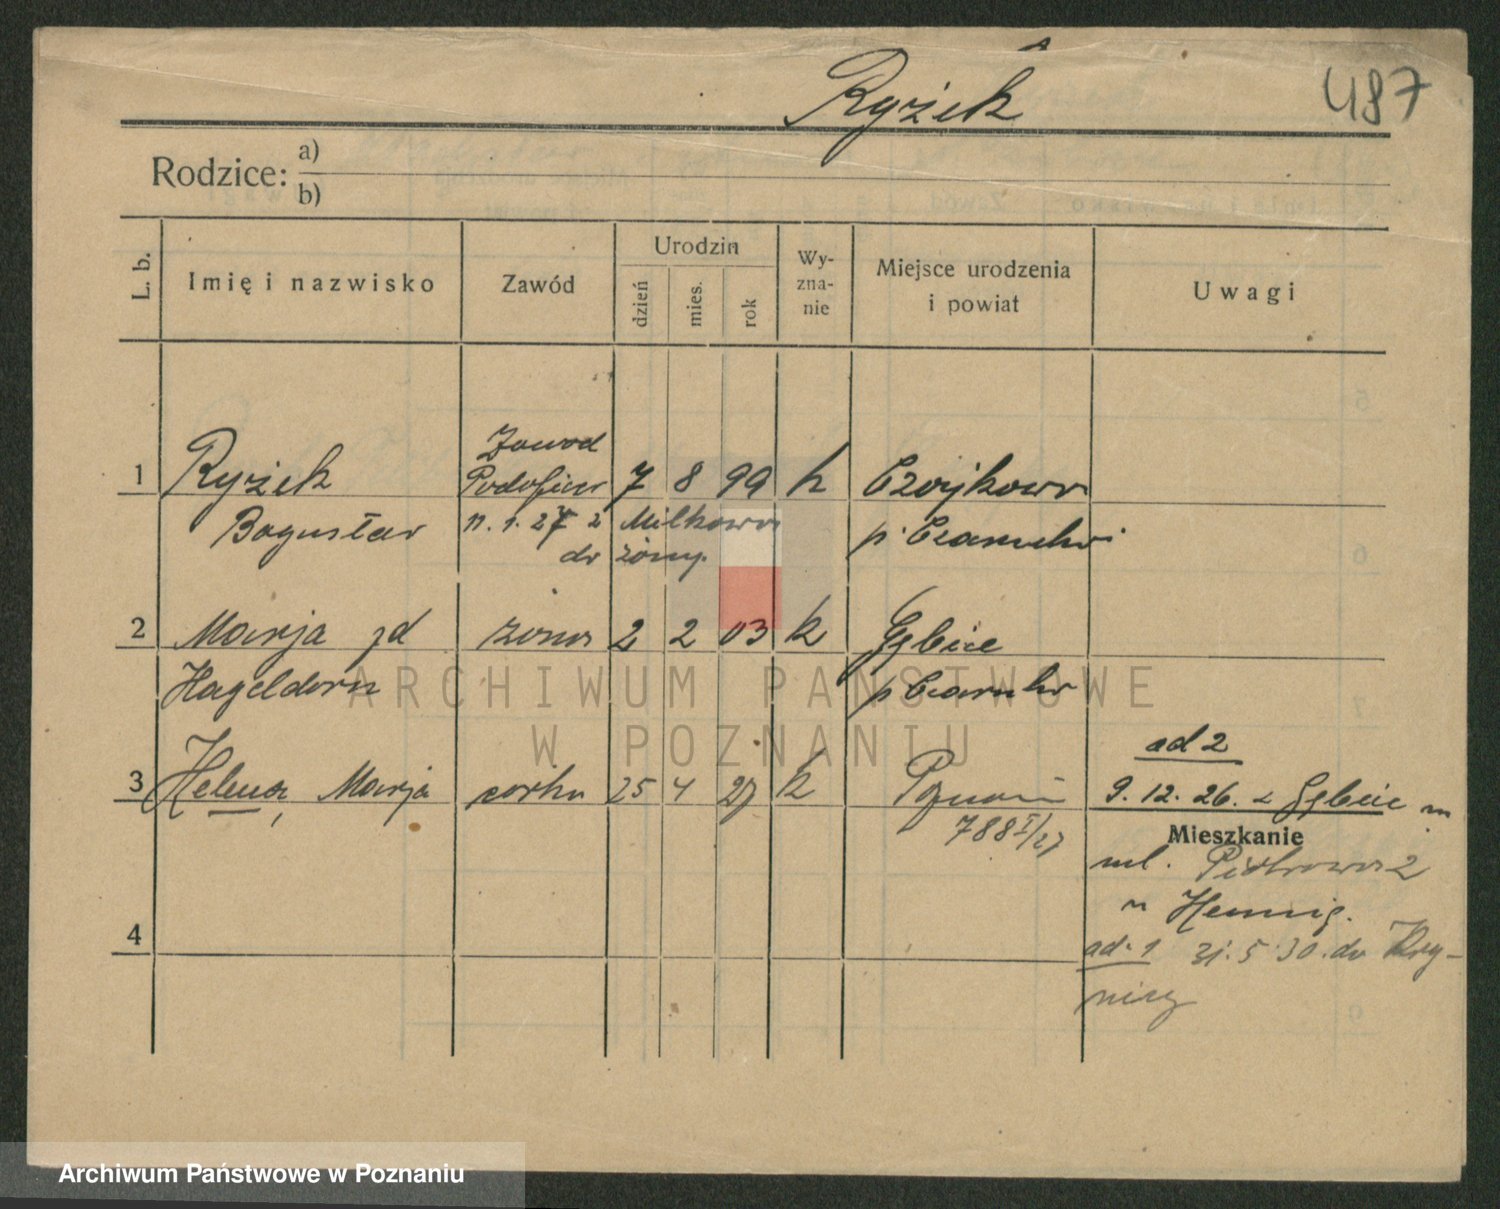 Ryżek
487
Rodzice: a)
b)
L. b. Imię i nazwisko Zawód Urodzin dzień mies. rok Wy-zna-nie Miejsce urodzenia i powiat Uwagi
Zawod
1 Ryżek Podoficer 7 8 99 k
Bogusław n. 1. 27 z Milkowa p. Czarnków
do żony.
2 Marja zd żona 2 2 03 k Gębice
Hageldorn p Czarnków
ad 2
3 Helena, Marja córka 25 4 27 k Poznań 9. 12. 26. z Gębice
788 I/27 Mieszkanie
ul. Piotrowo 2
4 u Hennig.
ad. 1 31. 5 30. do Kry-
nicy
ARCHIWUM PAŃSTWOWE
W POZNANIU
Archiwum Państwowe w Poznaniu